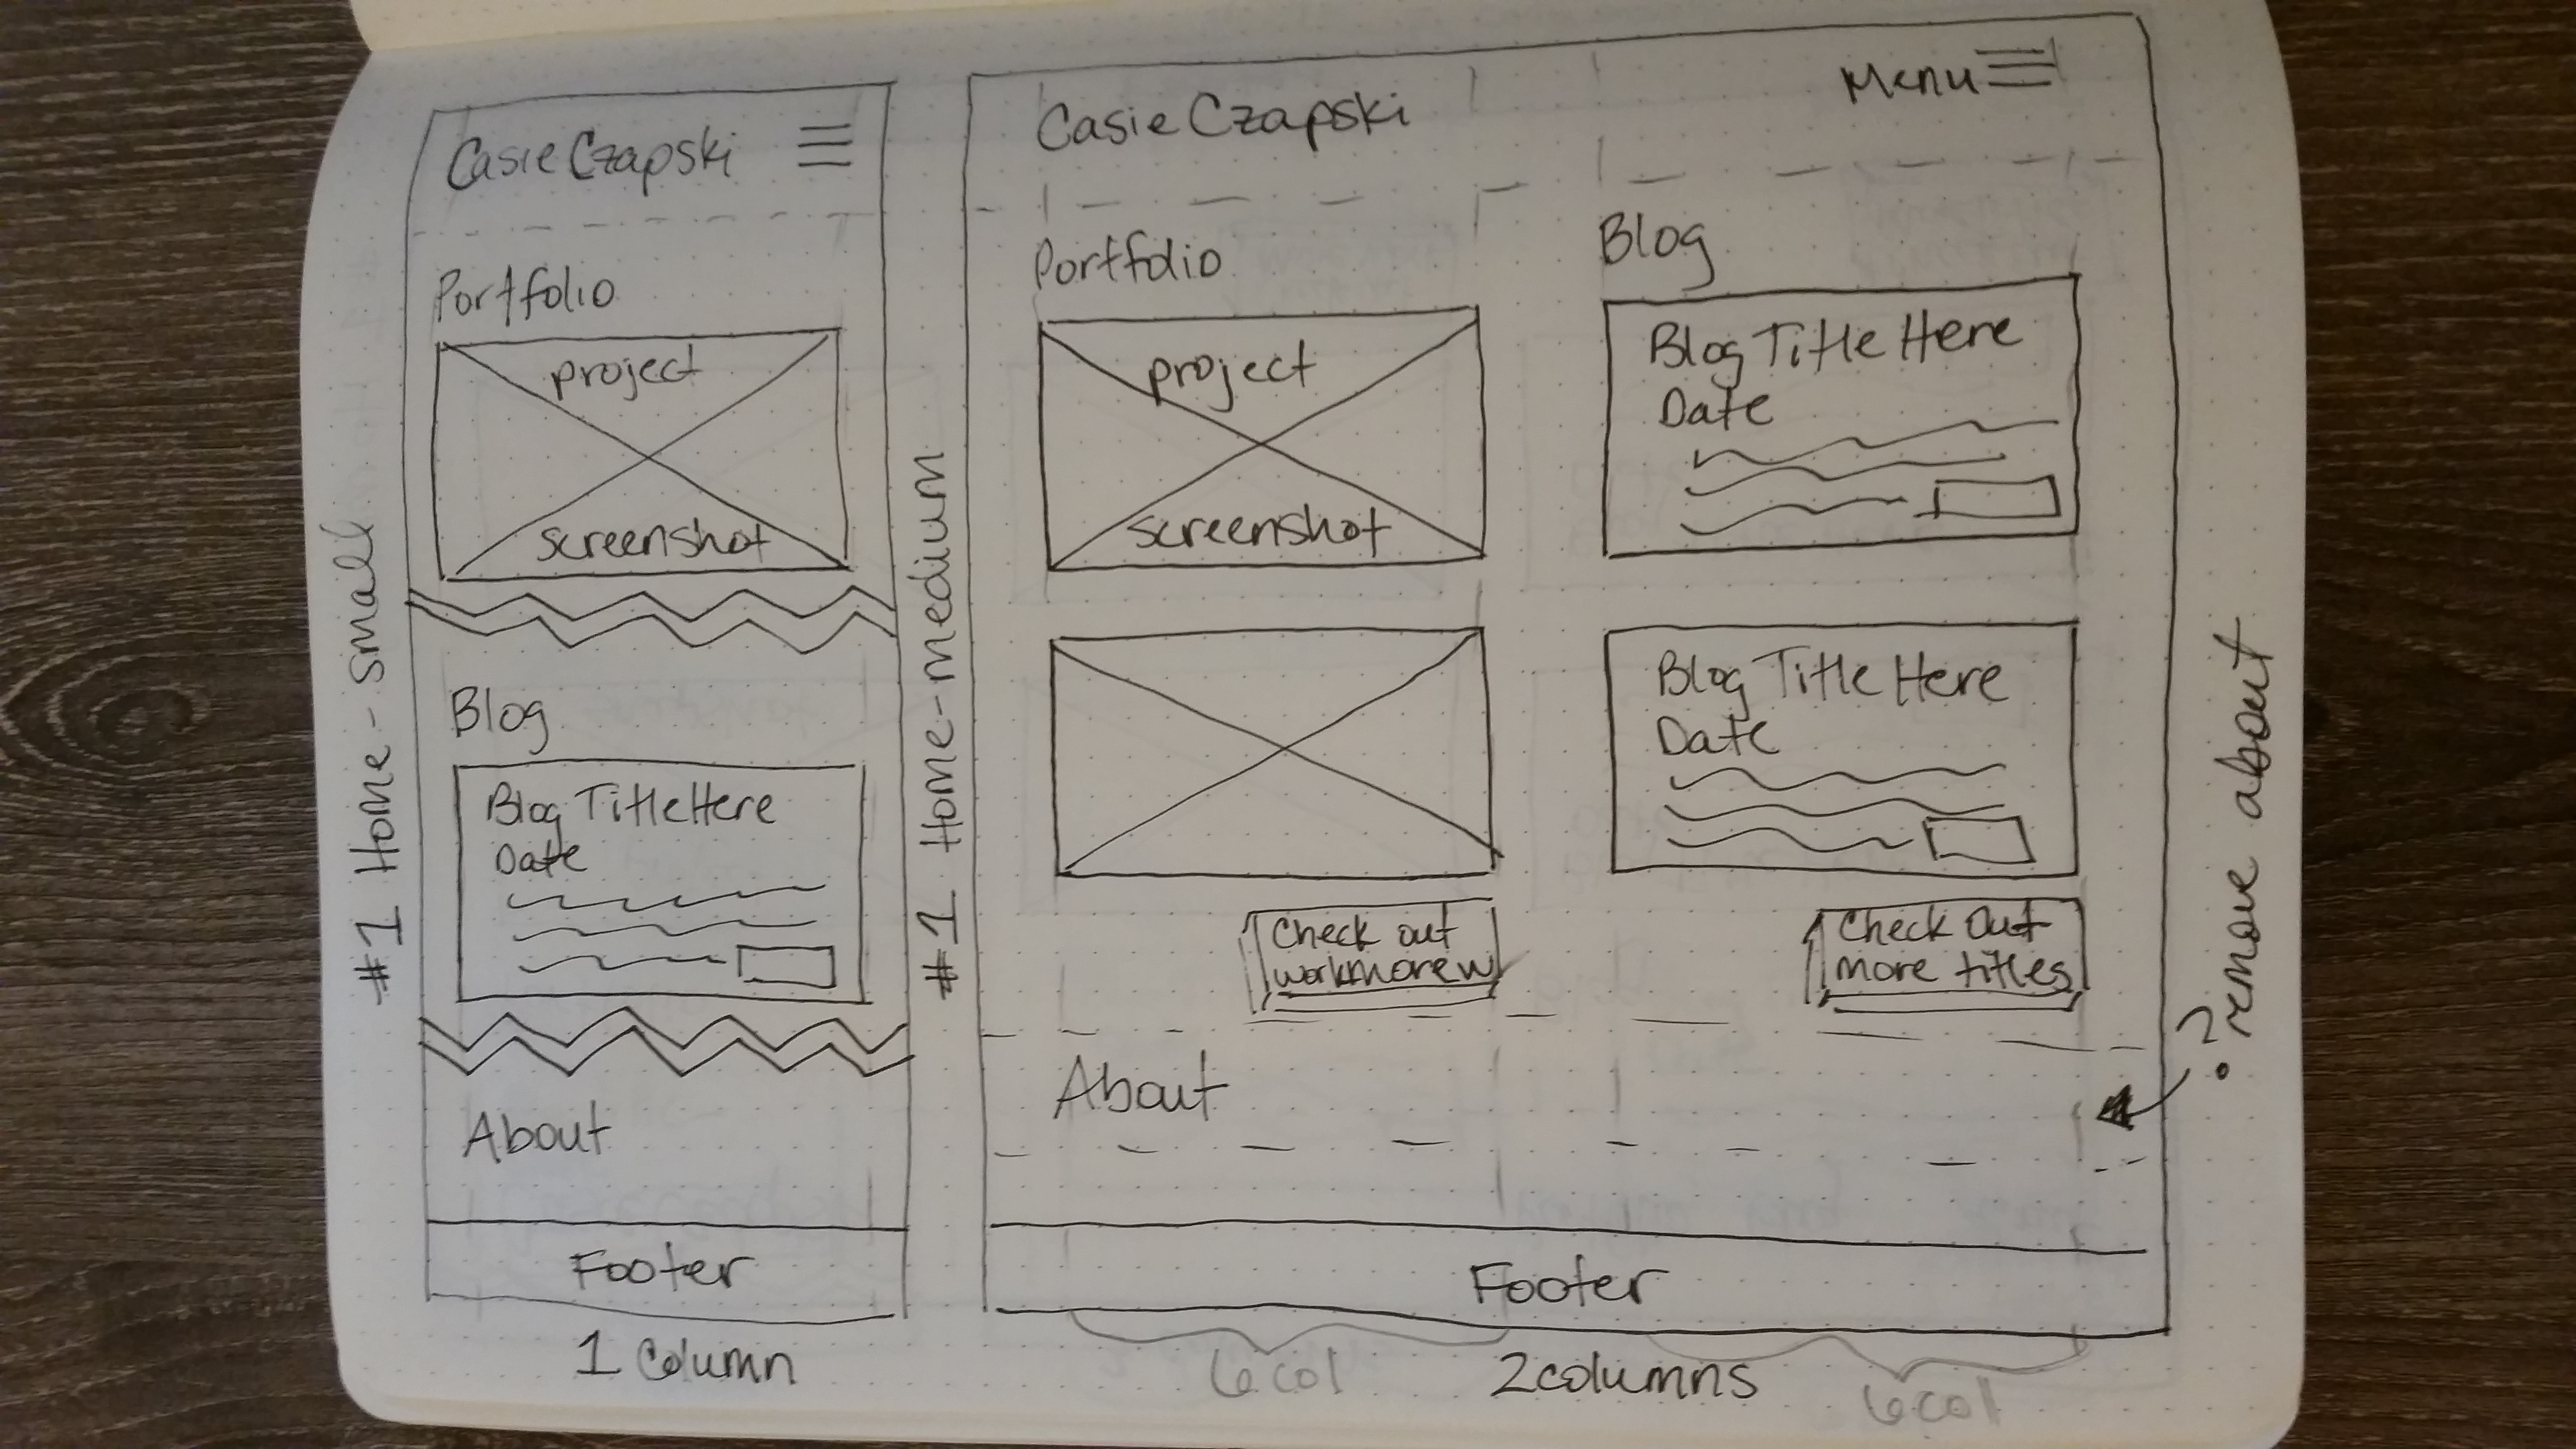 #1 Home - small
Casie Czapski
Portfolio
project
screenshot
Blog
Blog Title Here
Date
About
Footer
1 Column
#1 Home-medium
Casie Czapski
Menu
Portfolio
project
screenshot
Check out
workmorew
Blog
Blog Title Here
Date
Blog Title Here
Date
Check Out
more titles
About
Footer
6 col
2columns
6 col
? remove about